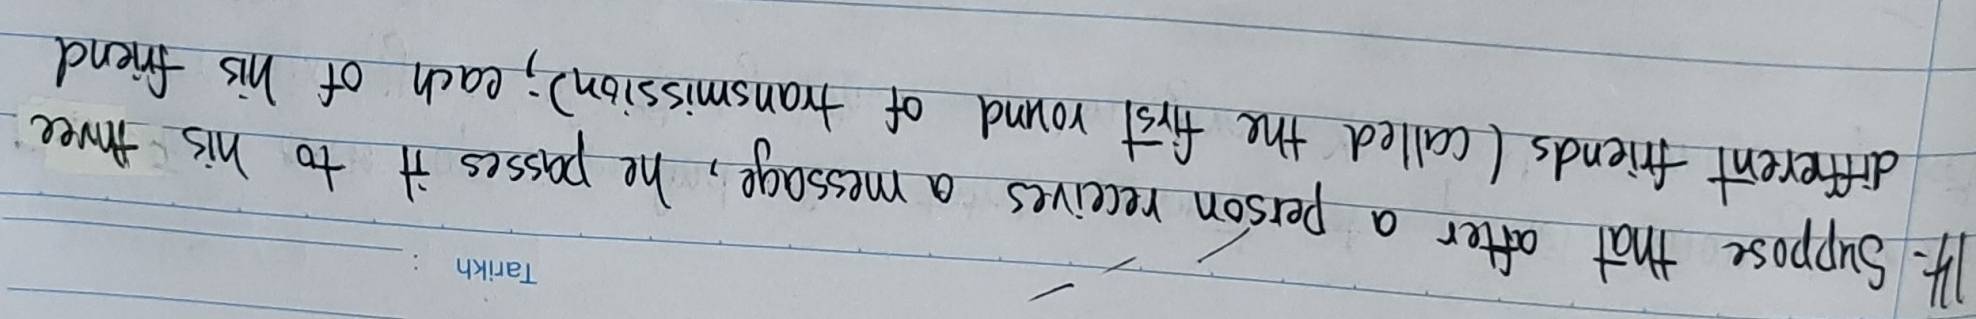 Tarikh :
14. Suppose that after a person receives a message, he passes it to his three
different friends (called the first round of transmission); each of his friend